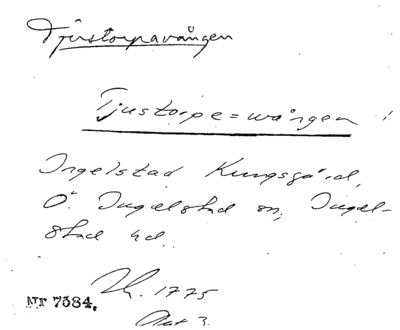 Tjustorpavången
Tjustorpe=wången
Ingelstad Kungsgård,
Ö. Ingelstad sn, Ingel-
stad hd.
1775
Nr 7384.
Akt 3